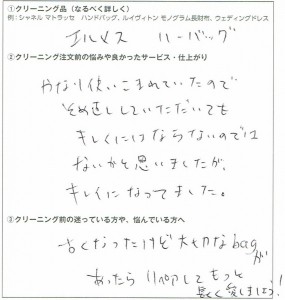 ①クリーニング品（なるべく詳しく）
例：シャネル マトラッセ　ハンドバッグ、ルイヴィトン モノグラム長財布、ウェディングドレス
エルメス　ハーバッグ
②クリーニング注文前の悩みや良かったサービス・仕上がり
かなり使いこまれていたので
そめ直ししていただいても
キレイにはならないのでは
ないかと思いましたが、
キレイになってました。
③クリーニング前の迷っている方や、悩んでいる方へ
古くなったけど大切なbagが
あったら リペアしてもっと
長く愛しましょう！